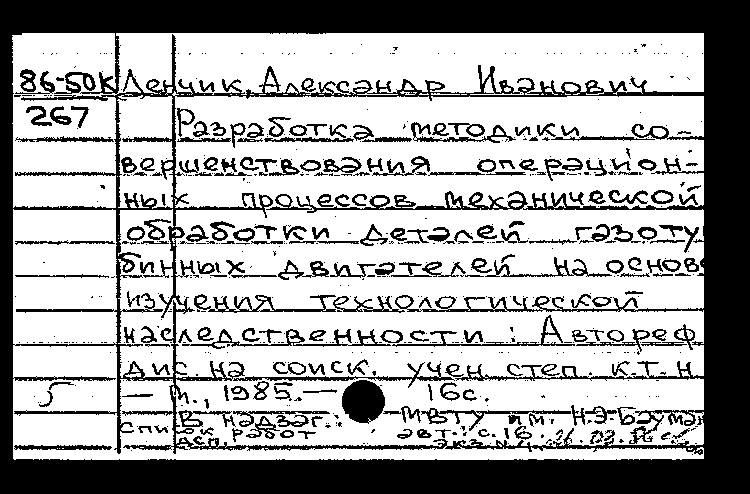 86-50к Ленчик, Александр Иванович
267
Разработка методики со-
вершенствования операцион-
ных процессов механической
обработки деталей газоту
бинных двигателей на основе
изучения технологической
наследственности : Автореф
дис. на соиск. учен. степ. к.т.н
5 — М., 1985. — 16с.
В надзаг.: МВТУ им. Н.Э.Бауман
Список работ авт.: с. 16.